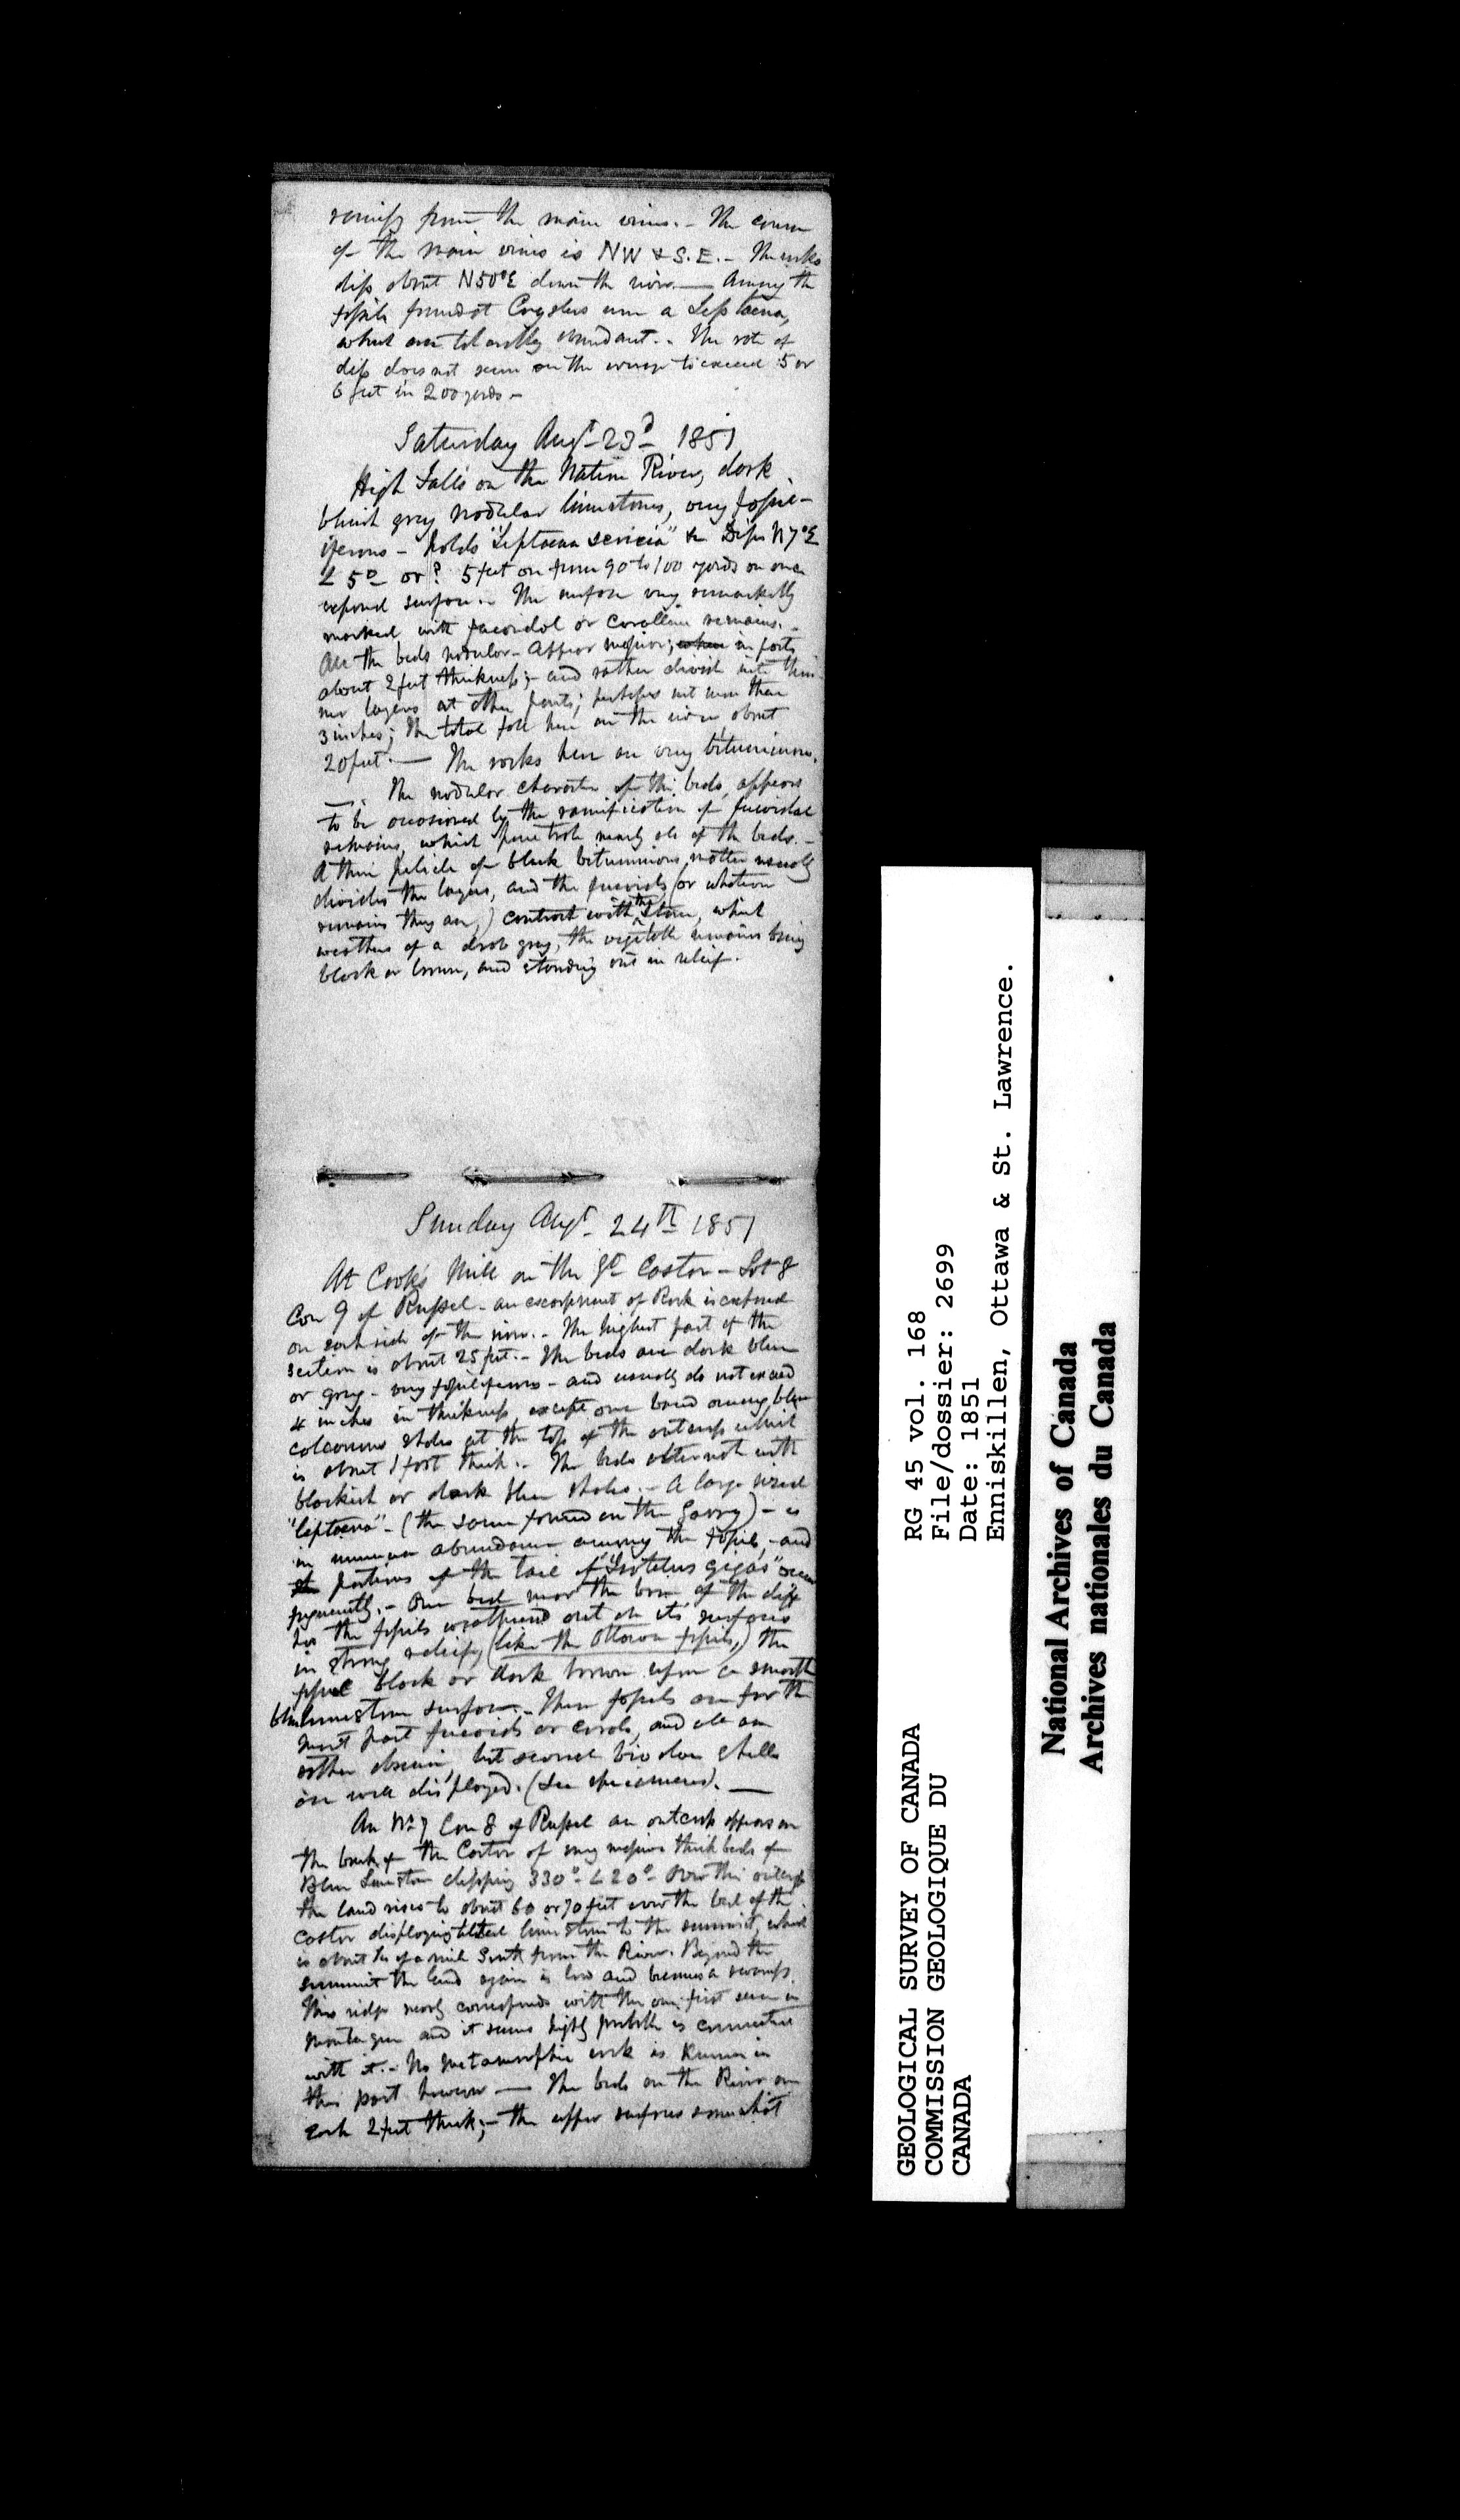 ramify from the main veins. - The course
of the main veins is NW & S.E. - The rocks
dip about N50°E down the river. — Among the
fossils found at Cryslers were a Leptaena,
which are tolerably abundant. - The rate of
dip does not seem on the average to exceed 5 or
6 feet in 200 yards -
Saturday Augt 23d 1851
High Falls on the Nation River, dark
bluish grey nodular limestones, very fossil-
iferous - holds "Leptaena sericia" &c Dips N7°E
∠ 5° or? 5 feet on from 90 to 100 yards on one
exposed surface. - The surface very remarkably
marked with fucoidal or coralline remains. -
All the beds nodular - appear massive, in parts
about 2 feet thickness; - and rather divide into thin
ner layers at other parts; perhaps not more than
3 inches; The total fall here on the river about
20 feet. — The rocks here are very bituminous.
—. The nodular character of the beds, appears
to be occasioned by the ramification of fucoidal
remains, which penetrate nearly all of the beds. -
A thin pelicle of black bituminous matter usually
divides the layers, and the fucoids (or whatever
remains they are,) contrast with the stone, which
weathers of a drab grey, the vegetable remains being
black or brown, and standing out in relief.
Sunday Augt 24th 1851
At Cook's Mill on the Gt Castor - Lot 8
Con 9 of Russel - an escarpment of Rock is exposed
on each side of the river. - The highest part of the
section is about 25 feet. - The beds are dark blue
or grey - very fossiliferous - and usually do not exceed
4 inches in thickness except one band among blue
calcareous shales at the top of the outcrop which
is about 1 foot thick. - The beds alternate with
blackish or dark blue shales. - A large sized
"leptaena" - (the same found on the Garry) - is
in immense abundance among the fossils, - and
portions of the tail of "Isotelus gigas" occur
frequently. - One bed near the base of the cliff
has the fossils weathered out on its surface
in strong relief, (like the Ottawa fossils,) the
fossil black or dark brown upon a smooth
blue limestone surface. - These fossils are for the
most part fucoids or corals, and all are
rather obscure, but several bivalve shells
are well displayed. (See specimens). —
On No 7 Con 8 of Russel an outcrop appears on
the bank of the Castor of very massive thick beds of
Blue Limestone dipping 330° ∠ 20° - Over this outcrop
the land rises to about 60 or 70 feet over the bed of the
Castor displaying tilted limestone to the summit, which
is about of a mile South from the River. Beyond the
summit the land again is low and becomes a swamp.
This ridge nearly corresponds with the one first seen in
and it seems highly probable is connected
with it. - No metamorphic rock is known in
this part however — The beds on the River are
each 2 feet thick; - the upper surfaces somewhat
GEOLOGICAL SURVEY OF CANADA
COMMISSION GEOLOGIQUE DU
CANADA
RG 45 vol. 168
File/dossier: 2699
Date: 1851
Enniskillen, Ottawa & St. Lawrence.
National Archives of Canada
Archives nationales du Canada